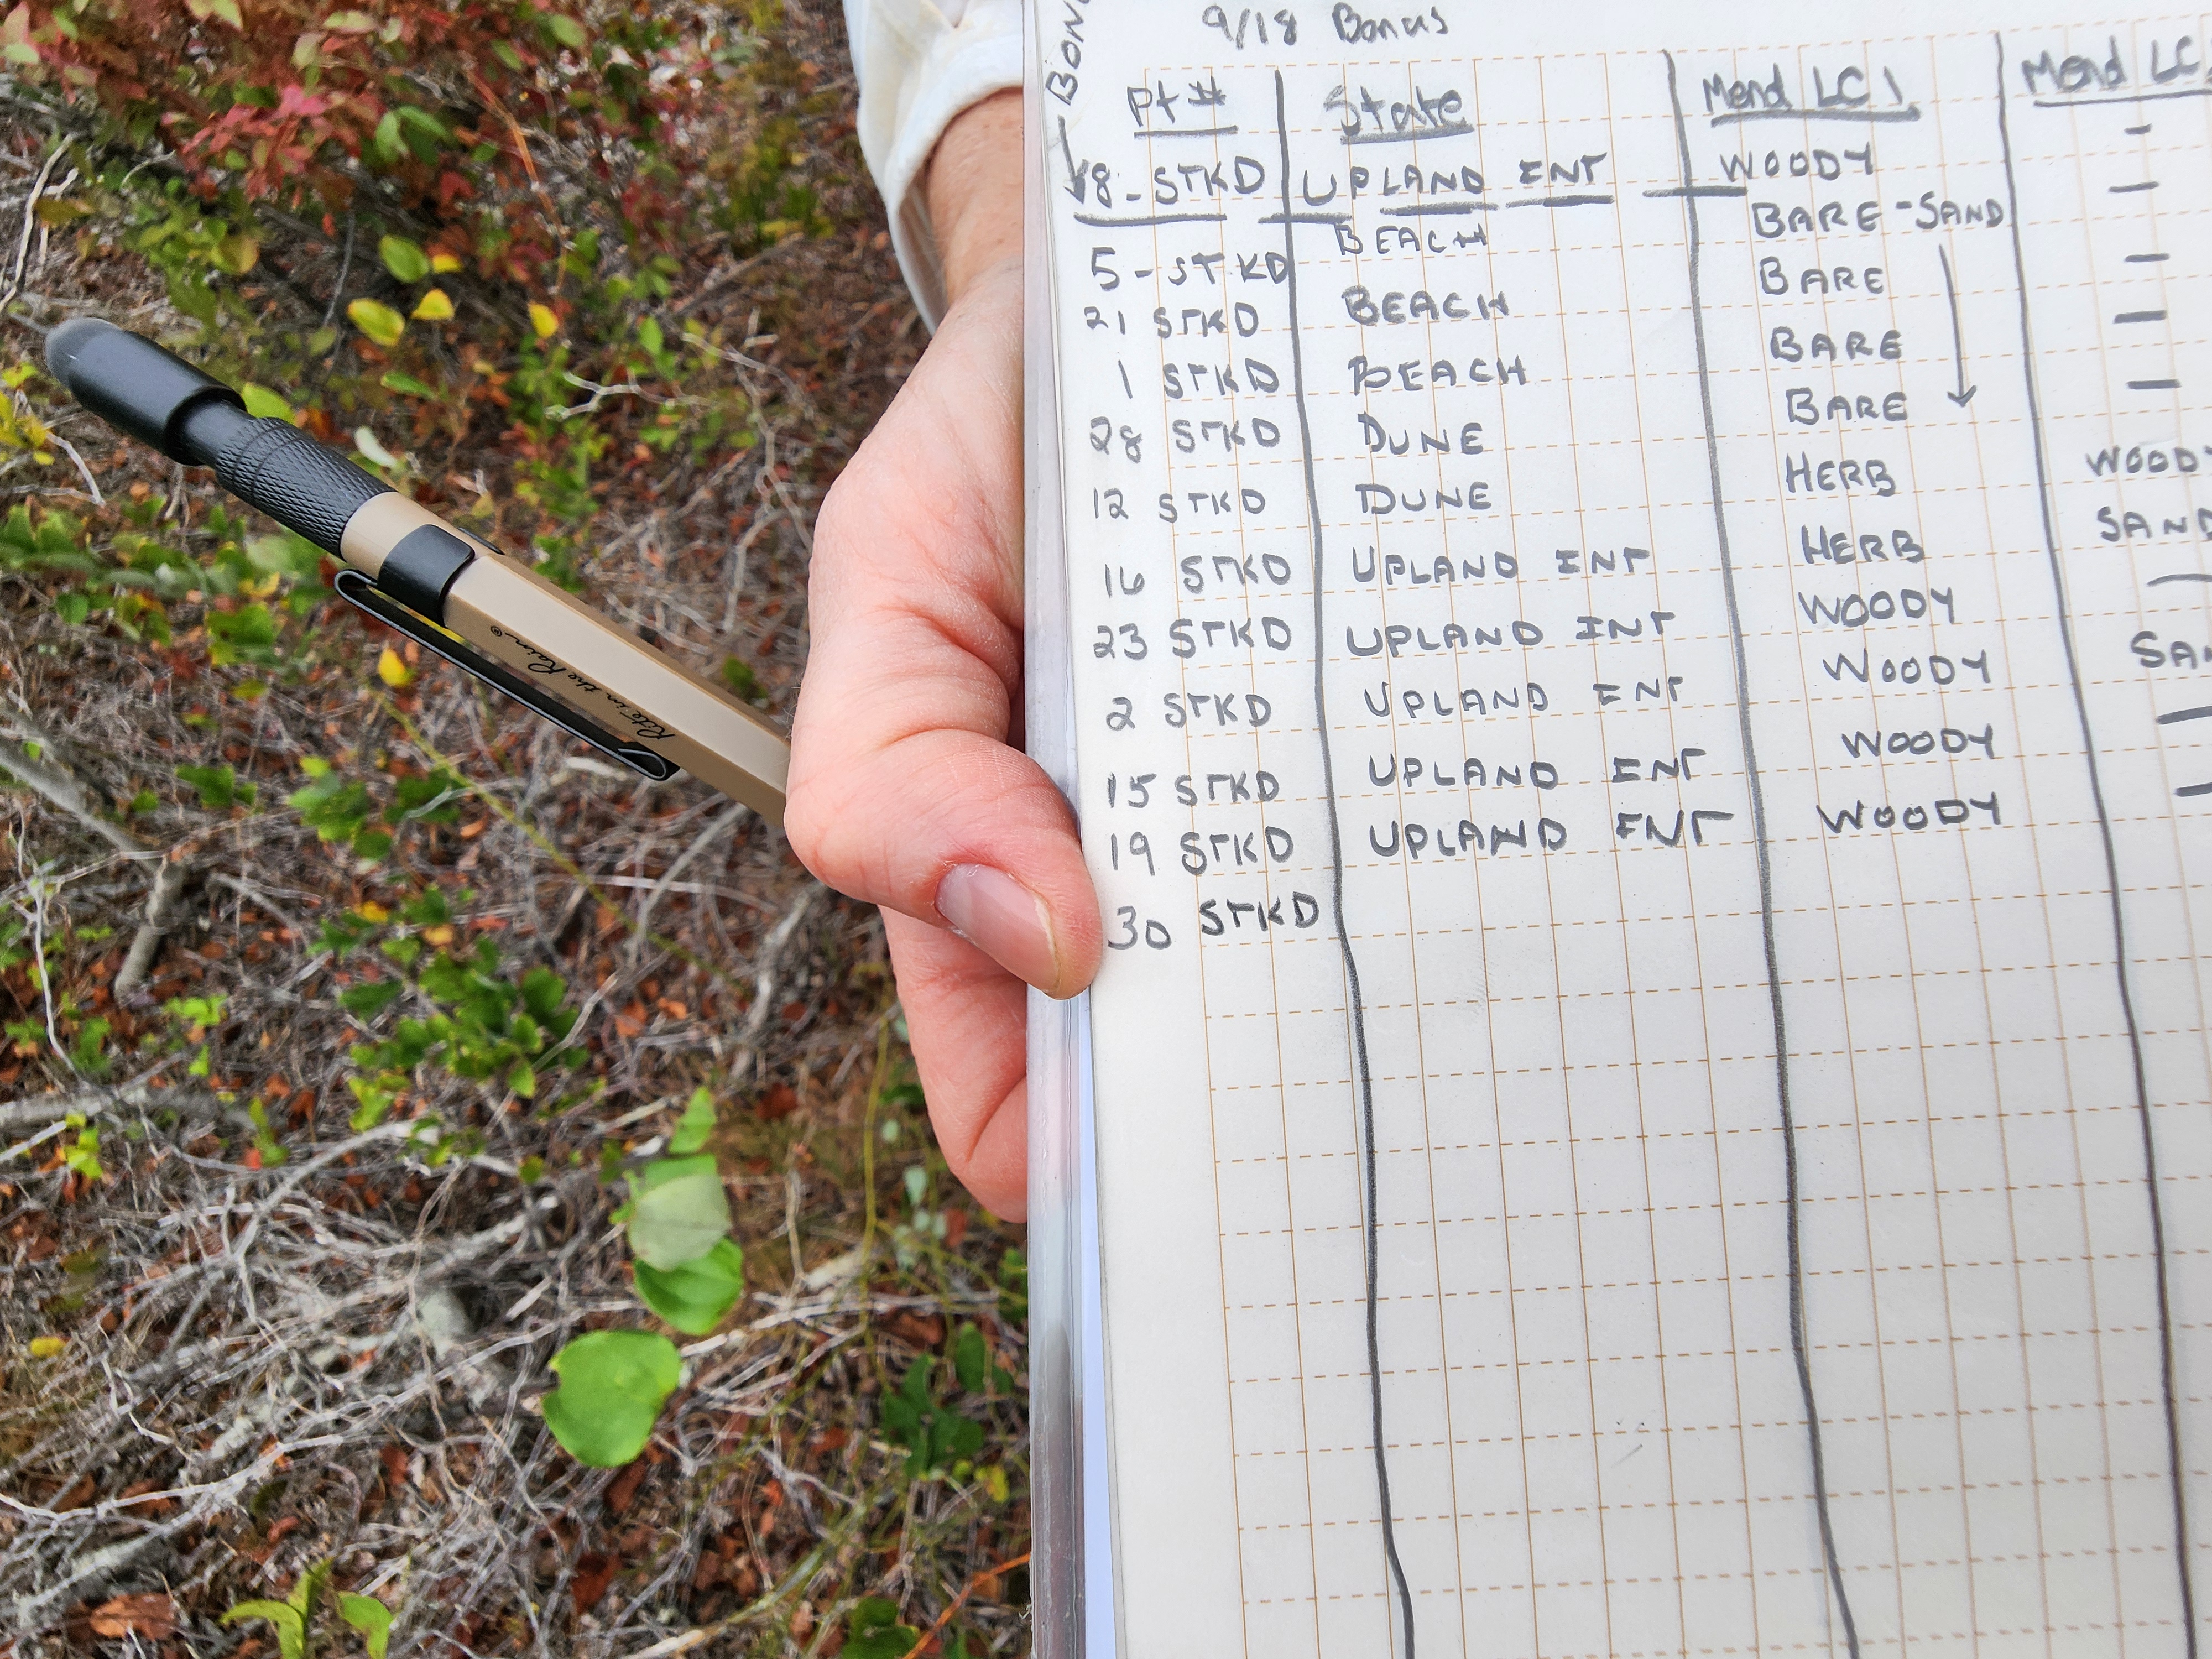 9/18 Bonus
Pt # State Mend LC 1 Mend LC
8 - STKD UPLAND INT WOODY -
5 - STKD BEACH BARE - SAND —
21 STKD BEACH BARE —
1 STKD BEACH BARE —
28 STKD DUNE BARE —
12 STKD DUNE HERB WOODY
16 STKD UPLAND INT HERB SAND
23 STKD UPLAND INT WOODY —
2 STKD UPLAND INT WOODY
15 STKD UPLAND INT WOODY —
19 STKD UPLAND INT WOODY —
30 STKD
Rite in the Rain®